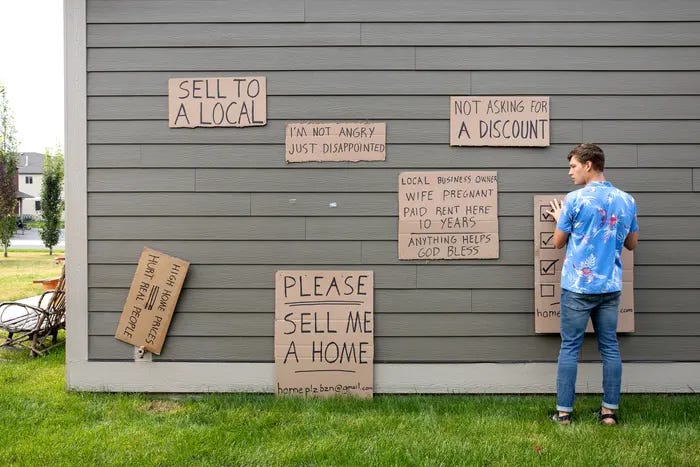 SELL TO
A LOCAL
I'M NOT ANGRY
JUST DISAPPOINTED
NOT ASKING FOR
A DISCOUNT
LOCAL BUSINESS OWNER
WIFE PREGNANT
PAID RENT HERE
10 YEARS
ANYTHING HELPS
GOD BLESS
HIGH HOME PRICES
HURT REAL PEOPLE
PLEASE
SELL ME
A HOME
homeplzbzn@gmail.com
home
.com